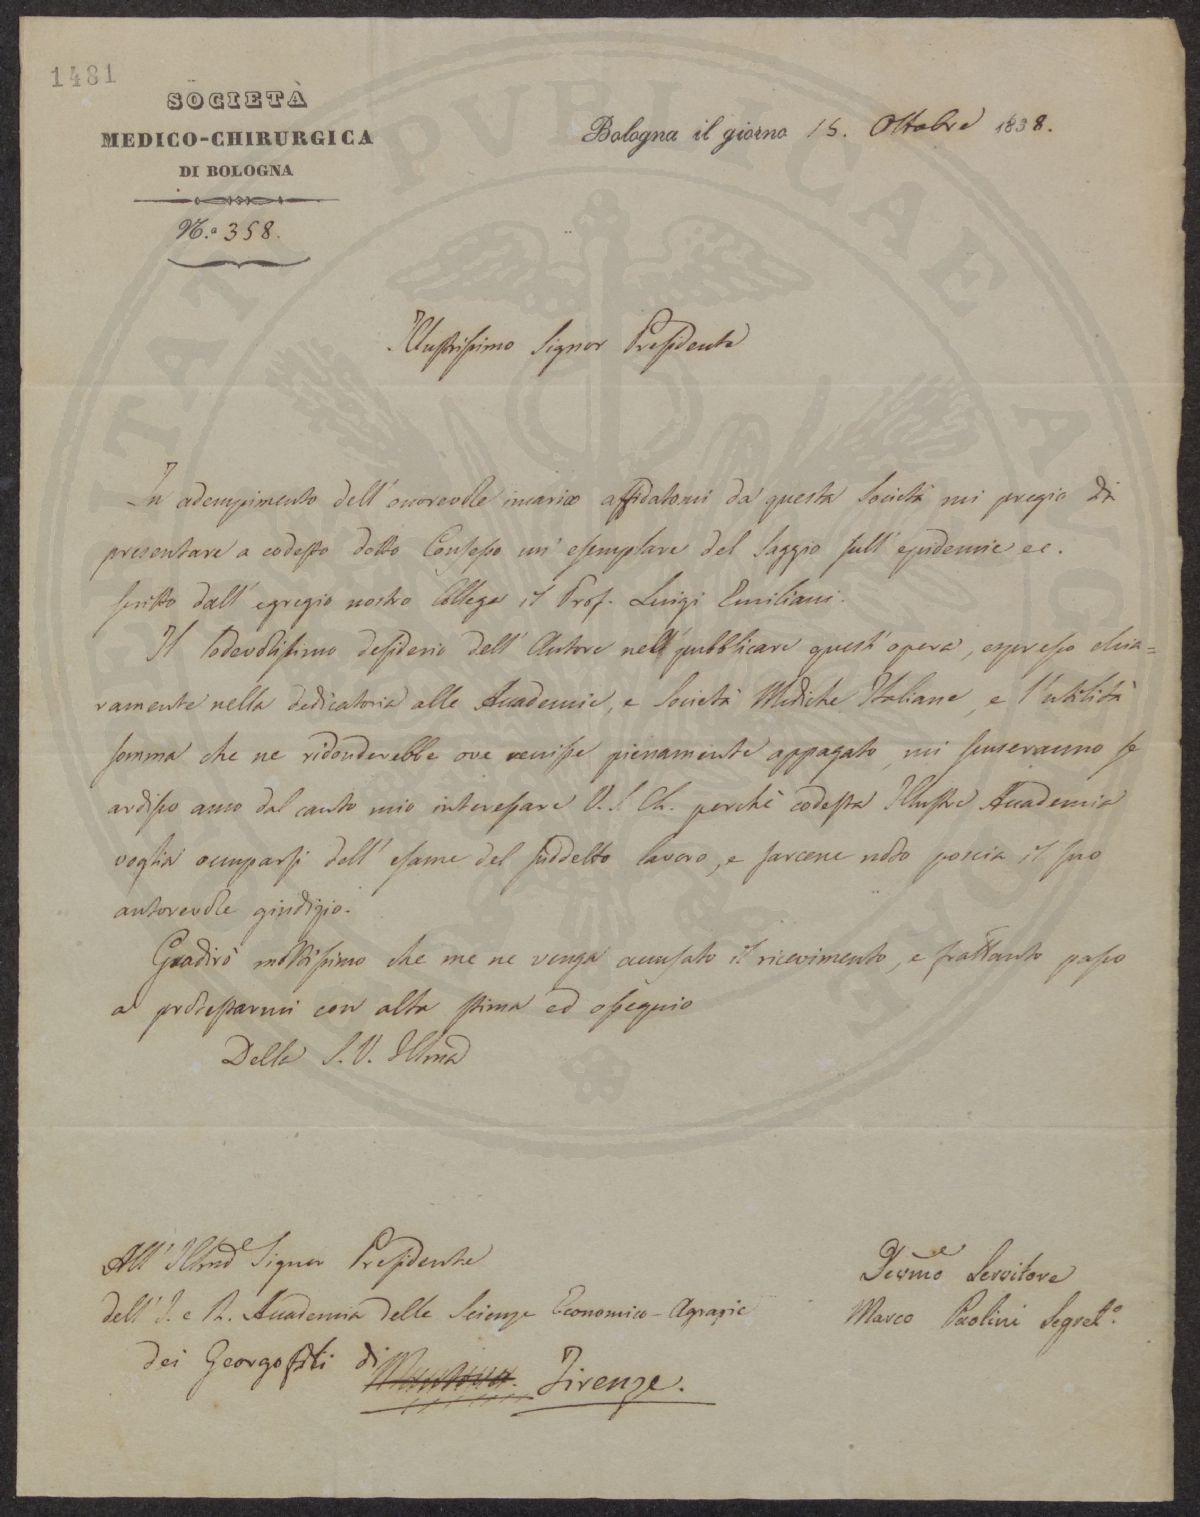 1481
SOCIETÀ
MEDICO-CHIRURGICA
DI BOLOGNA
N.º 358.
Bologna il giorno 15. Ottobre 1838.
Illustrissimo Signor Presidente
In adempimento dell' onorevole incarico affidatomi da questa Società mi pregio di
presentare a codesto dotto Consesso un' esemplare del Saggio sull' epidemie ec.
scritto dall' egregio nostro Collega il Prof. Luigi Emiliani.
Il lodevolissimo desiderio dell' Autore nell' pubblicare quest' opera, espresso chia=
ramente nella dedicatoria alle Accademie, e Società Mediche Italiane, e l' utilità
somma che ne ridonderebbe ove venisse pienamente appagato, mi scuseranno se
ardisco anco dal canto mio interessare V. S. Ch. perchè codesta Illustre Accademia
voglia occuparsi dell' esame del suddetto lavoro, e farcene noto poscia il suo
autorevole giudizio.
Gradirò moltissimo che me ne venga accusato il ricevimento, e frattanto passo
a protestarmi con alta stima ed ossequio
Della S. V. Illma
All' Illmo Signor Presidente
dell' I. e R. Accademia delle Scienze Economico-Agrarie
dei Georgofili di Mantova. Firenze.
Devmo Servitore
Marco Paolini Segret.º
PUBLICAE